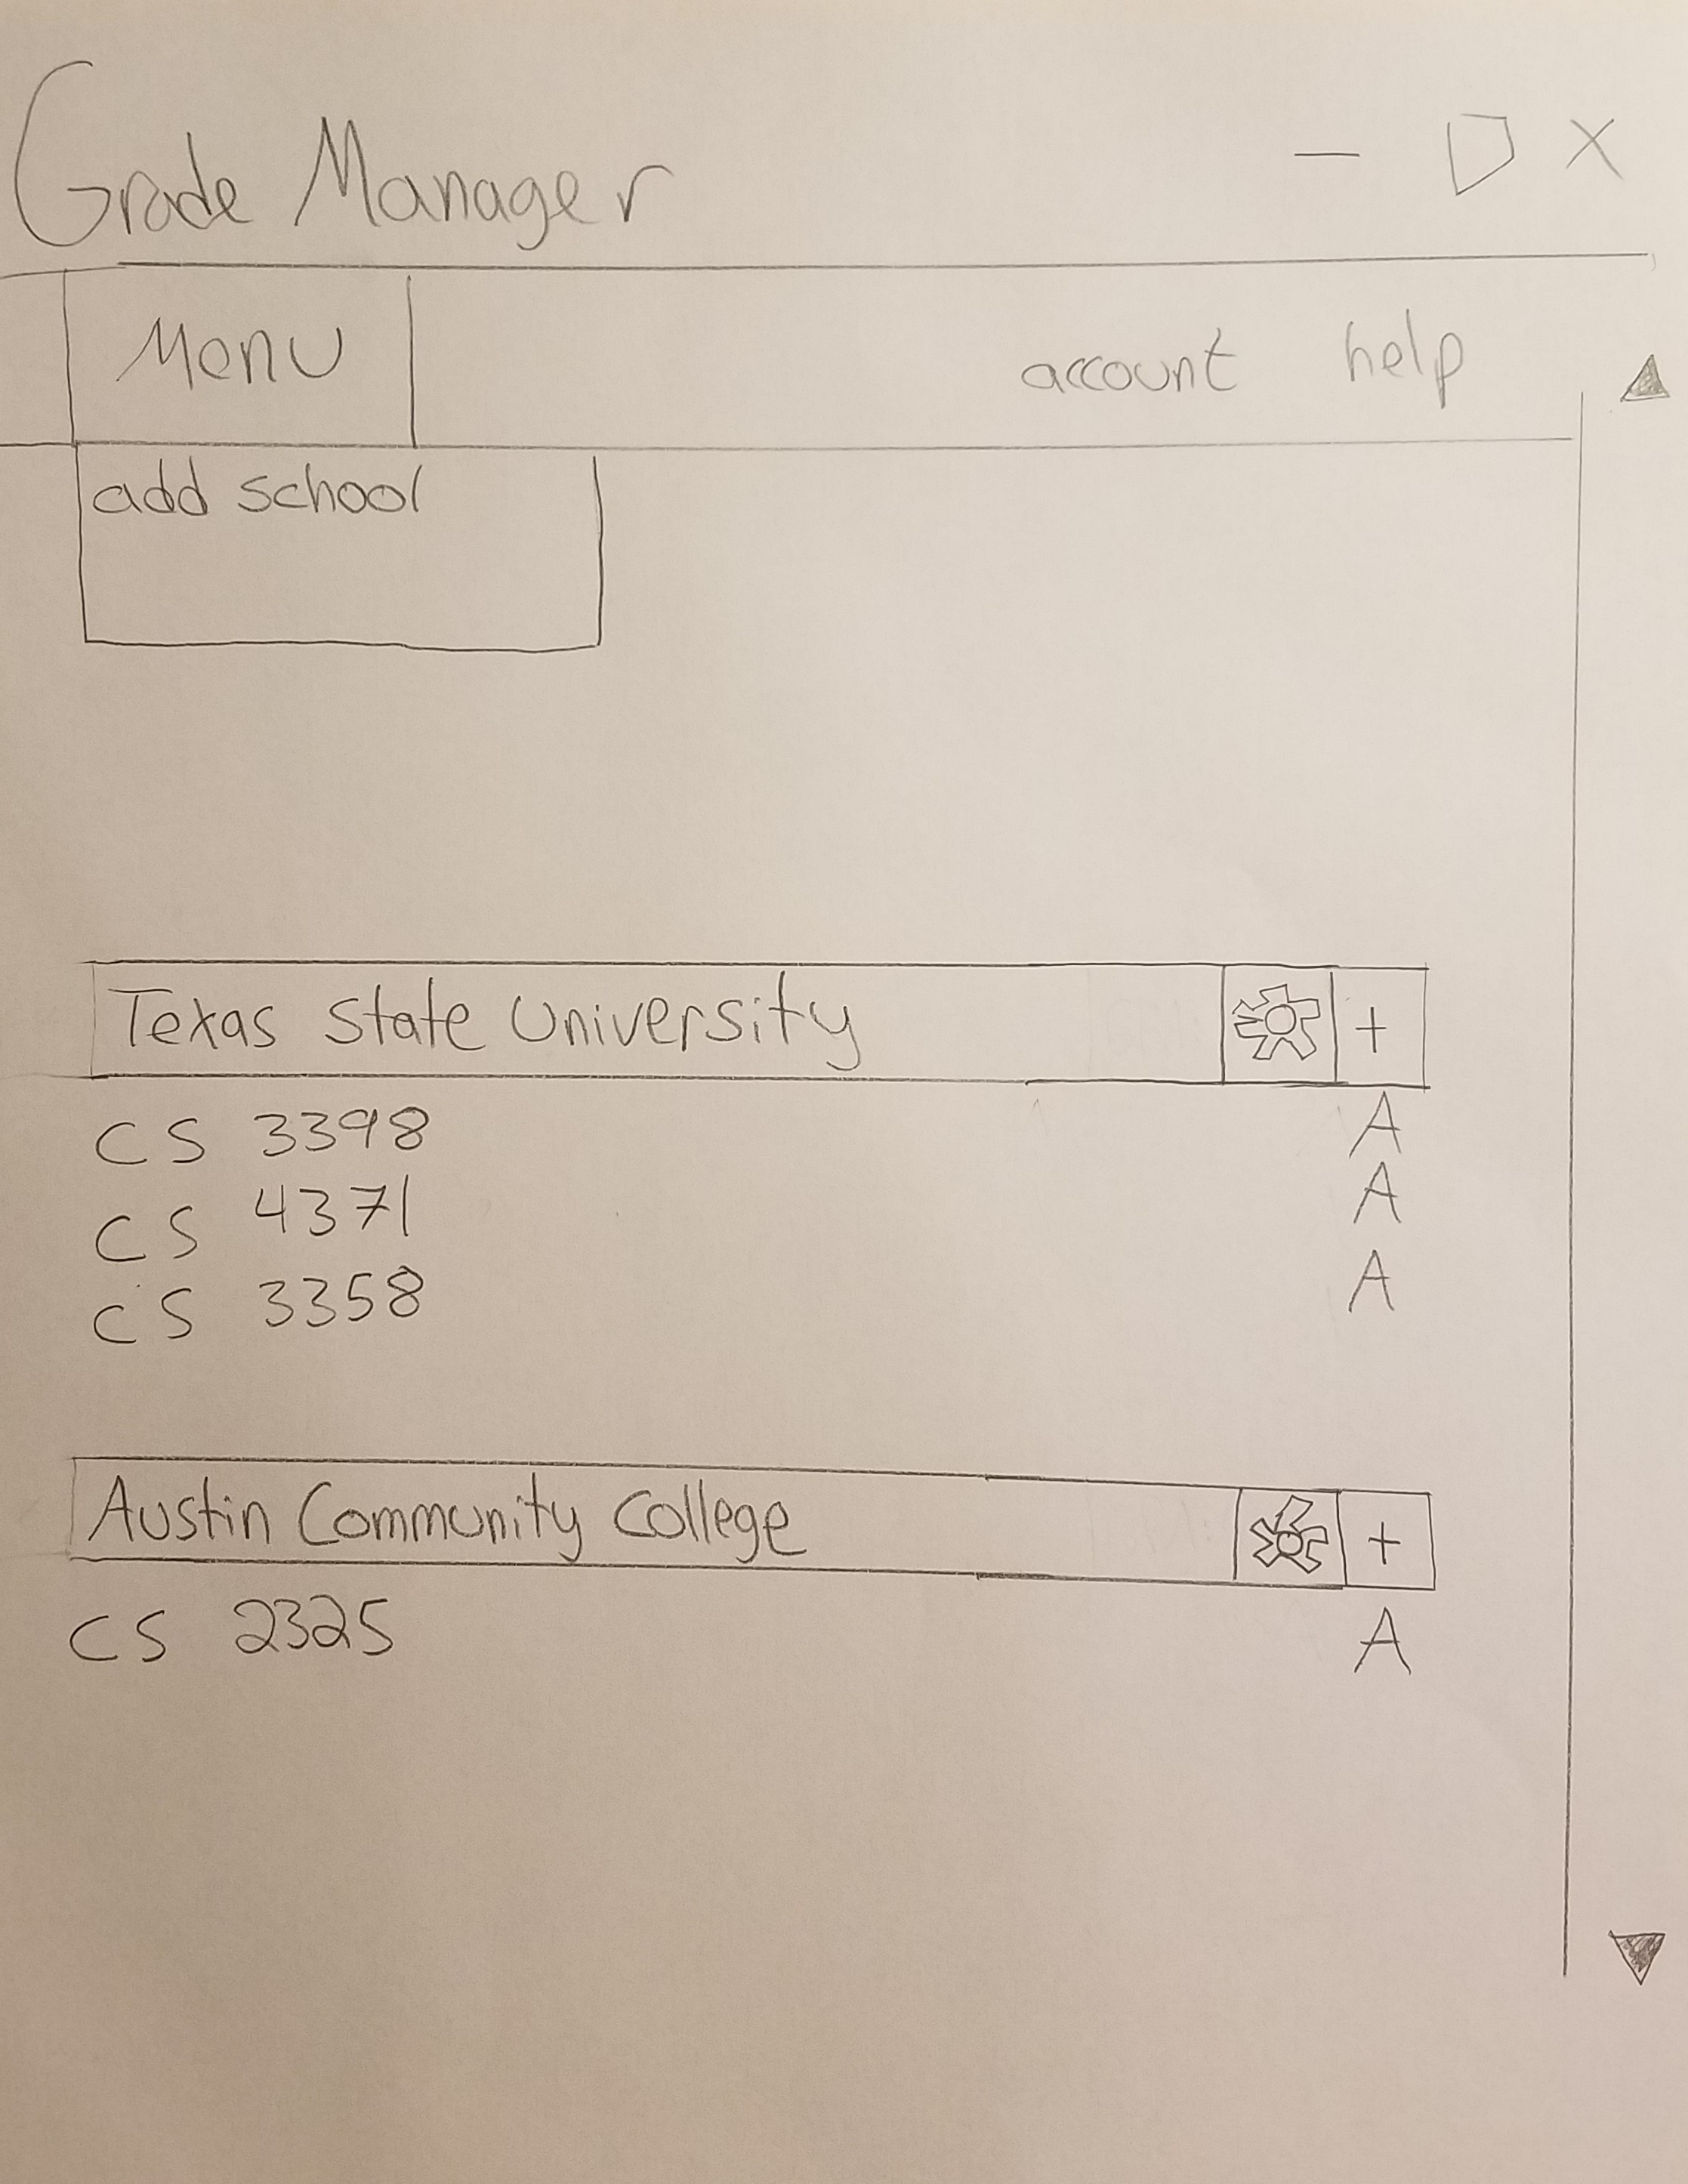 Grade Manager
Menu account help
add school
Texas State University +
CS 3398 A
CS 4371 A
CS 3358 A
Austin Community College +
CS 2325 A